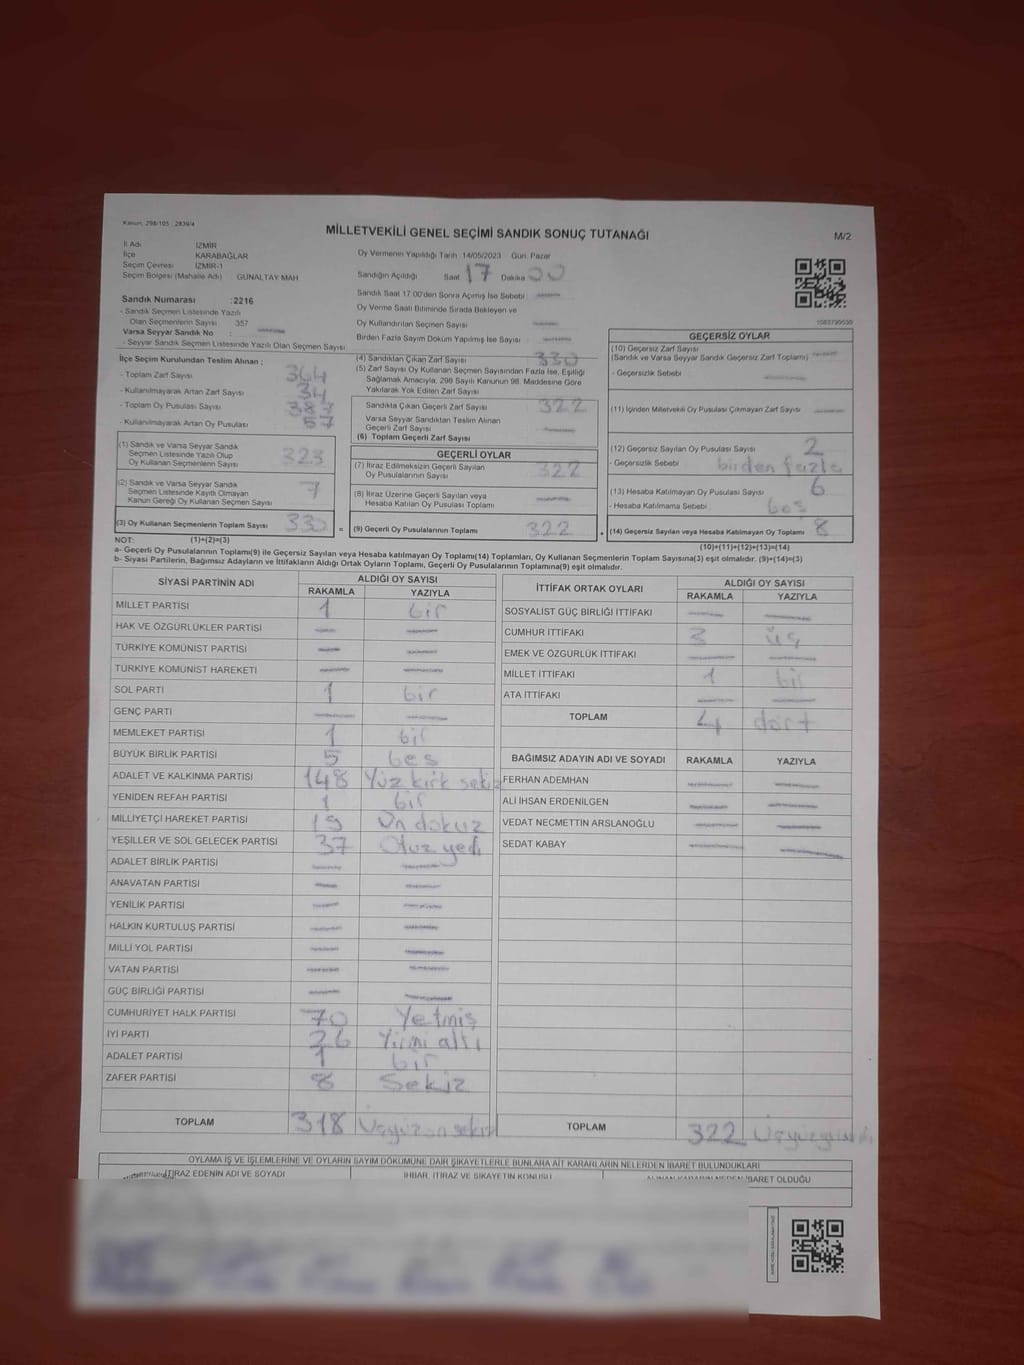 Kanun: 298/105 : 2839/4
MİLLETVEKİLİ GENEL SEÇİMİ SANDIK SONUÇ TUTANAĞI
M/2
İl Adı İZMİR
İlçe KARABAĞLAR
Seçim Çevresi İZMİR-1
Seçim Bölgesi (Mahalle Adı) GÜNALTAY MAH
Sandık Numarası :2216
- Sandık Seçmen Listesinde Yazılı
Olan Seçmenlerin Sayısı 357
Varsa Seyyar Sandık No :
- Seyyar Sandık Seçmen Listesinde Yazılı Olan Seçmen Sayısı
Oy Vermenin Yapıldığı Tarih 14/05/2023 Gün: Pazar
Sandığın Açıldığı Saat 17 Dakika 00
Sandık Saat 17:00'den Sonra Açımış İse Sebebi
Oy Verme Saati Bitiminde Sırada Bekleyen ve
Oy Kullandırılan Seçmen Sayısı
Birden Fazla Sayım Döküm Yapılmış İse Sayısı
İlçe Seçim Kurulundan Teslim Alınan ;
- Toplam Zarf Sayısı 364
- Kullanılmayarak Artan Zarf Sayısı 34
- Toplam Oy Pusulası Sayısı
- Kullanılmayarak Artan Oy Pusulası 57
(1) Sandık ve Varsa Seyyar Sandık
Seçmen Listesinde Yazılı Olup
Oy Kullanan Seçmenlerin Sayısı 323
(2) Sandık ve Varsa Seyyar Sandık
Seçmen Listesinde Kayıtlı Olmayan
Kanun Gereği Oy Kullanan Seçmen Sayısı 7
(3) Oy Kullanan Seçmenlerin Toplam Sayısı 330 =
(4) Sandıktan Çıkan Zarf Sayısı 330
(5) Zarf Sayısı Oy Kullanan Seçmen Sayısından Fazla İse, Eşitliği
Sağlamak Amacıyla, 298 Sayılı Kanunun 98. Maddesine Göre
Yakılarak Yok Edilen Zarf Sayısı
Sandıkta Çıkan Geçerli Zarf Sayısı 322
Varsa Seyyar Sandıktan Teslim Alınan
Geçerli Zarf Sayısı
(6) Toplam Geçerli Zarf Sayısı
GEÇERLİ OYLAR
(7) İtiraz Edilmeksizin Geçerli Sayılan
Oy Pusulalarının Sayısı 322
(8) İtiraz Üzerine Geçerli Sayılan veya
Hesaba Katılan Oy Pusulası Toplamı
(9) Geçerli Oy Pusulalarının Toplamı 322 +
GEÇERSİZ OYLAR
(10) Geçersiz Zarf Sayısı
(Sandık ve Varsa Seyyar Sandık Geçersiz Zarf Toplamı)
- Geçersizlik Sebebi
(11) İçinden Milletvekili Oy Pusulası Çıkmayan Zarf Sayısı
(12) Geçersiz Sayılan Oy Pusulası Sayısı 2
- Geçersizlik Sebebi birden fazla
(13) Hesaba Katılmayan Oy Pusulası Sayısı 6
- Hesaba Katılmama Sebebi boş
(14) Geçersiz Sayılan veya Hesaba Katılmayan Oy Toplamı 8
NOT: (1)+(2)=(3)
(10)+(11)+(12)+(13)=(14)
a- Geçerli Oy Pusulalarının Toplamı(9) ile Geçersiz Sayılan veya Hesaba katılmayan Oy Toplamı(14) Toplamları, Oy Kullanan Seçmenlerin Toplam Sayısına(3) eşit olmalıdır. (9)+(14)=(3)
b- Siyasi Partilerin, Bağımsız Adayların ve İttifakların Aldığı Ortak Oyların Toplamı, Geçerli Oy Pusulalarının Toplamına(9) eşit olmalıdır.
SİYASİ PARTİNİN ADI ALDIĞI OY SAYISI
RAKAMLA YAZIYLA
MİLLET PARTİSİ 1 bir
HAK VE ÖZGÜRLÜKLER PARTİSİ
TÜRKİYE KOMÜNİST PARTİSİ
TÜRKİYE KOMÜNİST HAREKETİ
SOL PARTİ 1 bir
GENÇ PARTİ
MEMLEKET PARTİSİ 1 bir
BÜYÜK BİRLİK PARTİSİ 5 beş
ADALET VE KALKINMA PARTİSİ 148 Yüz kırk sekiz
YENİDEN REFAH PARTİSİ 1 bir
MİLLİYETÇİ HAREKET PARTİSİ 19 On dokuz
YEŞİLLER VE SOL GELECEK PARTİSİ 37 Otuz yedi
ADALET BİRLİK PARTİSİ
ANAVATAN PARTİSİ
YENİLİK PARTİSİ
HALKIN KURTULUŞ PARTİSİ
MİLLİ YOL PARTİSİ
VATAN PARTİSİ
GÜÇ BİRLİĞİ PARTİSİ
CUMHURİYET HALK PARTİSİ 70 Yetmiş
İYİ PARTİ 26 Yirmi altı
ADALET PARTİSİ 1 bir
ZAFER PARTİSİ 8 Sekiz
TOPLAM 318 Üçyüz on sekiz
İTTİFAK ORTAK OYLARI ALDIĞI OY SAYISI
RAKAMLA YAZIYLA
SOSYALİST GÜÇ BİRLİĞİ İTTİFAKI
CUMHUR İTTİFAKI 3 üç
EMEK VE ÖZGÜRLÜK İTTİFAKI
MİLLET İTTİFAKI 1 bir
ATA İTTİFAKI
TOPLAM 4 dört
BAĞIMSIZ ADAYIN ADI VE SOYADI RAKAMLA YAZIYLA
FERHAN ADEMHAN
ALİ İHSAN ERDENİLGEN
VEDAT NECMETTİN ARSLANOĞLU
SEDAT KABAY
TOPLAM 322
OYLAMA İŞ VE İŞLEMLERİNE VE OYLARIN SAYIM DÖKÜMÜNE DAİR ŞİKAYETLERLE BUNLARA AİT KARARLARIN NELERDEN İBARET BULUNDUKLARI
İTİRAZ EDENİN ADI VE SOYADI İHBAR, İTİRAZ VE ŞİKAYETİN KONUSU ALINAN KARARIN NEDEN İBARET OLDUĞU